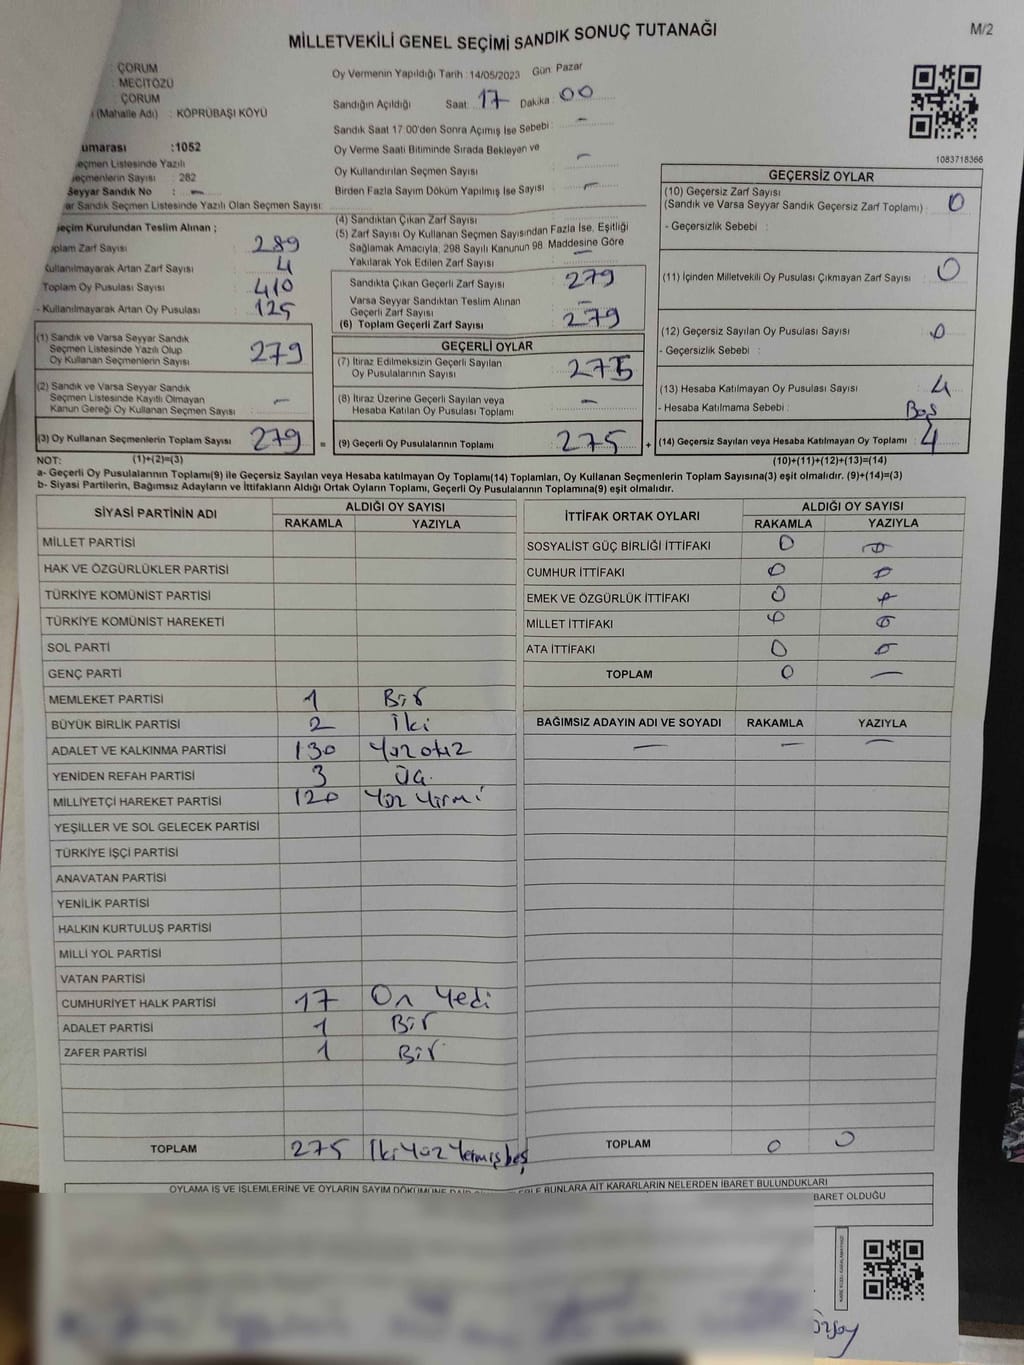 MİLLETVEKİLİ GENEL SEÇİMİ SANDIK SONUÇ TUTANAĞI
M/2
: ÇORUM
: MECİTÖZÜ
: ÇORUM
(Mahalle Adı) : KÖPRÜBAŞI KÖYÜ
umarası :1052
eçmen Listesinde Yazılı
eçmenlerin Sayısı : 282
Seyyar Sandık No : -
ar Sandık Seçmen Listesinde Yazılı Olan Seçmen Sayısı:
Oy Vermenin Yapıldığı Tarih :14/05/2023 Gün: Pazar
Sandığın Açıldığı Saat: 17 Dakika: 00
Sandık Saat 17:00'den Sonra Açımış İse Sebebi : -
Oy Verme Saati Bitiminde Sırada Bekleyen ve
Oy Kullandırılan Seçmen Sayısı : -
Birden Fazla Sayım Döküm Yapılmış İse Sayısı : -
1083718366
eçim Kurulundan Teslim Alınan ;
oplam Zarf Sayısı : 289
Kullanılmayarak Artan Zarf Sayısı : 4
Toplam Oy Pusulası Sayısı : 410
- Kullanılmayarak Artan Oy Pusulası : 125
(1) Sandık ve Varsa Seyyar Sandık
Seçmen Listesinde Yazılı Olup
Oy Kullanan Seçmenlerin Sayısı : 279
(2) Sandık ve Varsa Seyyar Sandık
Seçmen Listesinde Kayıtlı Olmayan
Kanun Gereği Oy Kullanan Seçmen Sayısı : -
(3) Oy Kullanan Seçmenlerin Toplam Sayısı : 279 =
(4) Sandıktan Çıkan Zarf Sayısı :
(5) Zarf Sayısı Oy Kullanan Seçmen Sayısından Fazla İse, Eşitliği
Sağlamak Amacıyla, 298 Sayılı Kanunun 98. Maddesine Göre
Yakılarak Yok Edilen Zarf Sayısı : -
Sandıkta Çıkan Geçerli Zarf Sayısı : 279
Varsa Seyyar Sandıktan Teslim Alınan
Geçerli Zarf Sayısı : -
(6) Toplam Geçerli Zarf Sayısı : 279
GEÇERLİ OYLAR
(7) İtiraz Edilmeksizin Geçerli Sayılan
Oy Pusulalarının Sayısı : 275
(8) İtiraz Üzerine Geçerli Sayılan veya
Hesaba Katılan Oy Pusulası Toplamı : -
(9) Geçerli Oy Pusulalarının Toplamı : 275 +
GEÇERSİZ OYLAR
(10) Geçersiz Zarf Sayısı
(Sandık ve Varsa Seyyar Sandık Geçersiz Zarf Toplamı) : 0
- Geçersizlik Sebebi :
(11) İçinden Milletvekili Oy Pusulası Çıkmayan Zarf Sayısı : 0
(12) Geçersiz Sayılan Oy Pusulası Sayısı : 0
- Geçersizlik Sebebi :
(13) Hesaba Katılmayan Oy Pusulası Sayısı : 4
- Hesaba Katılmama Sebebi : Boş
(14) Geçersiz Sayılan veya Hesaba Katılmayan Oy Toplamı : 4
NOT: (1)+(2)=(3)
(10)+(11)+(12)+(13)=(14)
a- Geçerli Oy Pusulalarının Toplamı(9) ile Geçersiz Sayılan veya Hesaba katılmayan Oy Toplamı(14) Toplamları, Oy Kullanan Seçmenlerin Toplam Sayısına(3) eşit olmalıdır. (9)+(14)=(3)
b- Siyasi Partilerin, Bağımsız Adayların ve İttifakların Aldığı Ortak Oyların Toplamı, Geçerli Oy Pusulalarının Toplamına(9) eşit olmalıdır.
SİYASİ PARTİNİN ADI ALDIĞI OY SAYISI
RAKAMLA YAZIYLA
MİLLET PARTİSİ
HAK VE ÖZGÜRLÜKLER PARTİSİ
TÜRKİYE KOMÜNİST PARTİSİ
TÜRKİYE KOMÜNİST HAREKETİ
SOL PARTİ
GENÇ PARTİ
MEMLEKET PARTİSİ 1 Bir
BÜYÜK BİRLİK PARTİSİ 2 İki
ADALET VE KALKINMA PARTİSİ 130 Yüz otuz
YENİDEN REFAH PARTİSİ 3 Üç
MİLLİYETÇİ HAREKET PARTİSİ 120 Yüz Yirmi
YEŞİLLER VE SOL GELECEK PARTİSİ
TÜRKİYE İŞÇİ PARTİSİ
ANAVATAN PARTİSİ
YENİLİK PARTİSİ
HALKIN KURTULUŞ PARTİSİ
MİLLİ YOL PARTİSİ
VATAN PARTİSİ
CUMHURİYET HALK PARTİSİ 17 On Yedi
ADALET PARTİSİ 1 Bir
ZAFER PARTİSİ 1 Bir
TOPLAM 275 İki Yüz Yetmişbeş
İTTİFAK ORTAK OYLARI ALDIĞI OY SAYISI
RAKAMLA YAZIYLA
SOSYALİST GÜÇ BİRLİĞİ İTTİFAKI 0 0
CUMHUR İTTİFAKI 0 0
EMEK VE ÖZGÜRLÜK İTTİFAKI 0 0
MİLLET İTTİFAKI 0 0
ATA İTTİFAKI 0 0
TOPLAM 0 -
BAĞIMSIZ ADAYIN ADI VE SOYADI RAKAMLA YAZIYLA
- - -
TOPLAM 0 0
OYLAMA İŞ VE İŞLEMLERİNE VE OYLARIN SAYIM DÖKÜMÜNE BUNLARA AİT KARARLARIN NELERDEN İBARET BULUNDUKLARI
BARET OLDUĞU